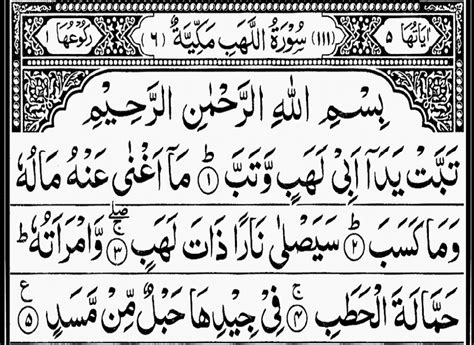 اٰيَاتُهَا ٥ (١١١) سُوْرَةُ اللَّهَبِ مَكِّيَّةٌ (٦) رُكُوْعُهَا ١
بِسْمِ اللّٰهِ الرَّحْمٰنِ الرَّحِيْمِ
تَبَّتْ يَدَاۤ اَبِيْ لَهَبٍ وَّتَبَّ ؕ﴿١﴾ مَاۤ اَغْنٰى عَنْهُ مَالُهٗ
وَمَا كَسَبَ ؕ﴿٢﴾ سَيَصْلٰى نَارًا ذَاتَ لَهَبٍ ۖۚ﴿٣﴾ وَّامْرَاَتُهٗ ؕ
حَمَّالَةَ الْحَطَبِ ۚ﴿٤﴾ فِيْ جِيْدِهَا حَبْلٌ مِّنْ مَّسَدٍ ﴿٥﴾ ع